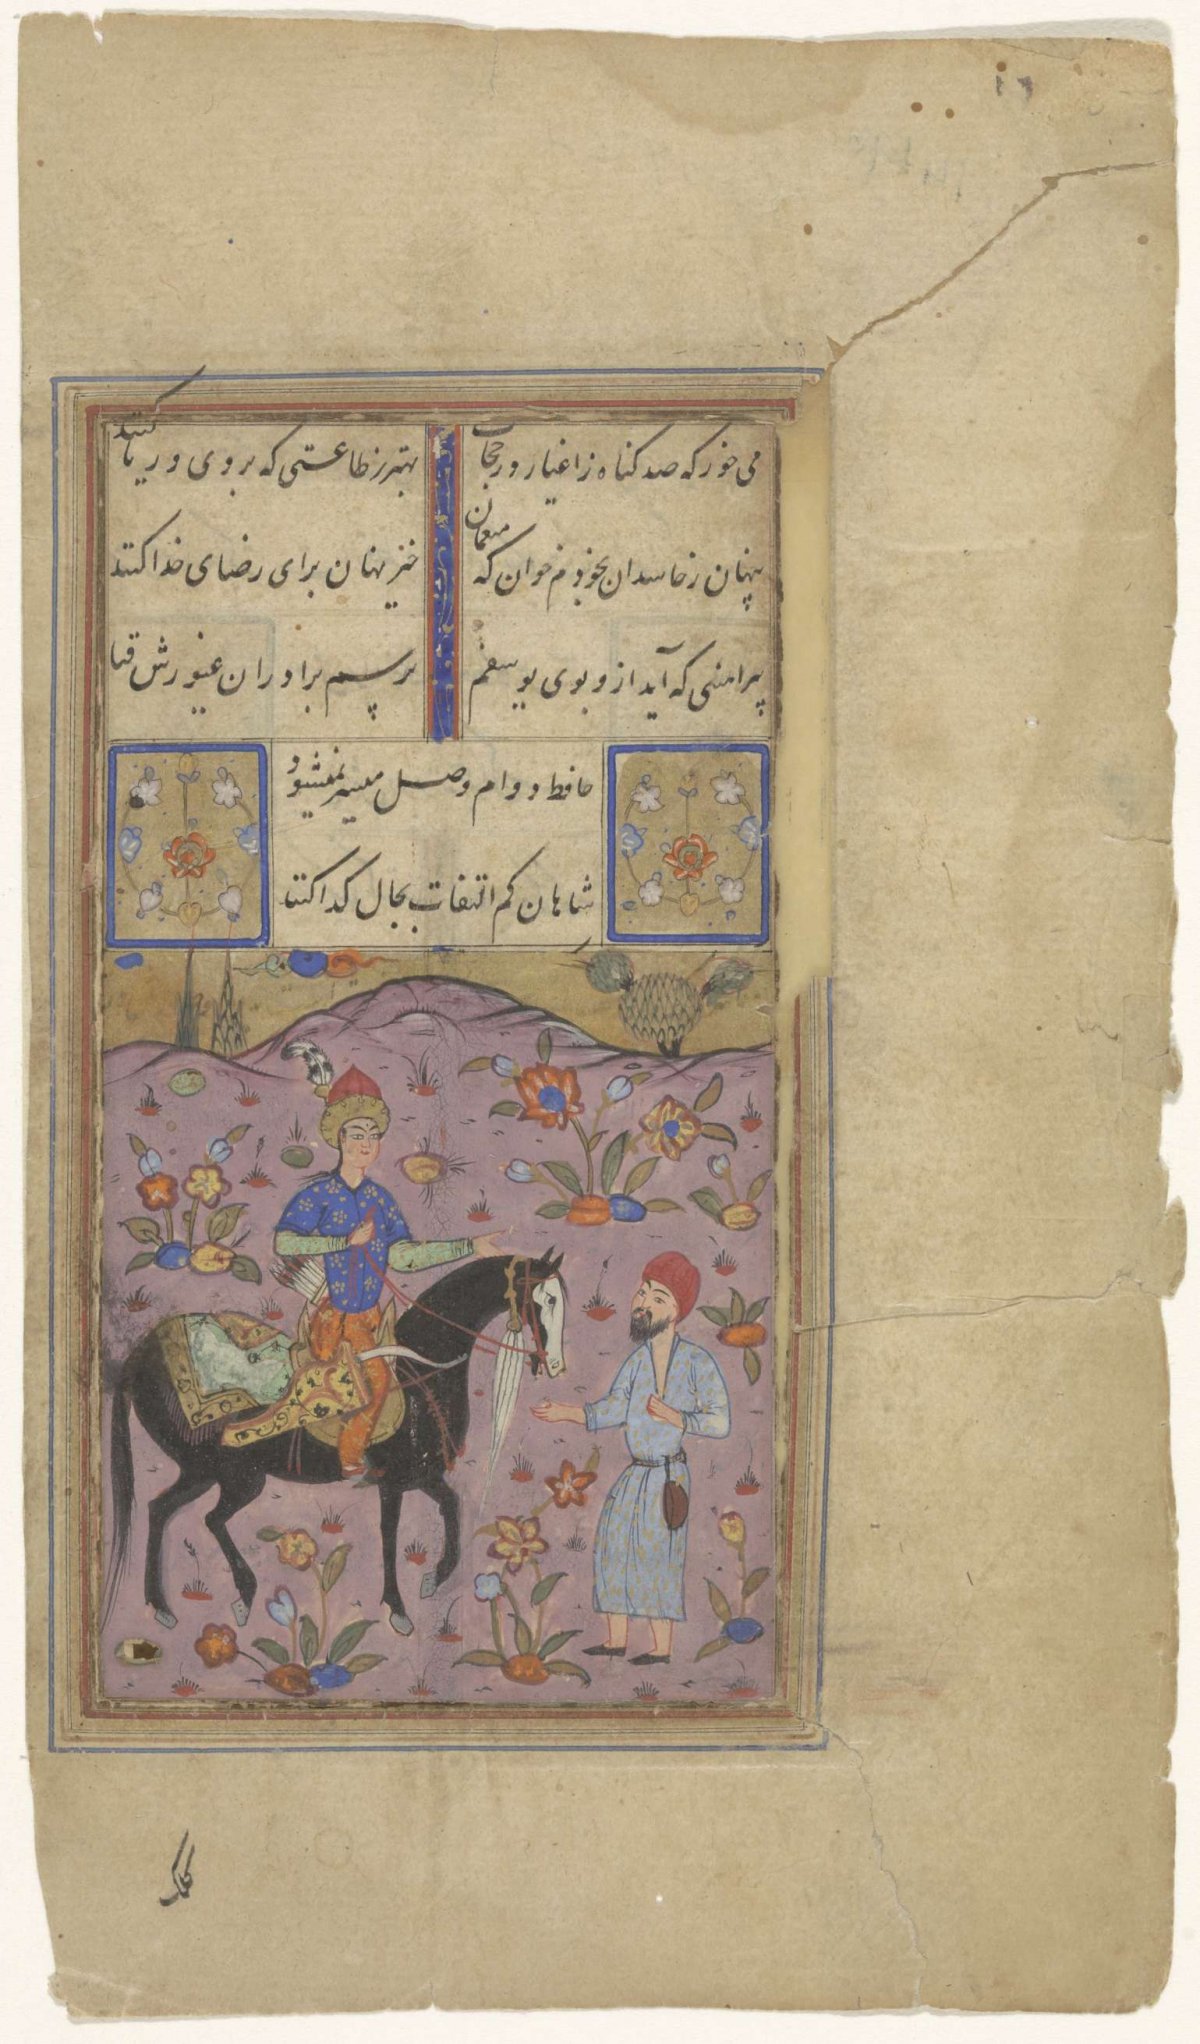 می خور که صد گناه ز اغیار در حجاب
بهتر ز طاعتی که بروی و ریا کنند
پنهان ز حاسدان بخودم خوان که منعمان
خیر نهان برای رضای خدا کنند
پیراهنی که آید ازو بوی یوسفم
ترسم برادران غیورش قبا
حافظ دوام وصل میسر نمیشود
شاهان کم التفات بحال گدا کنند